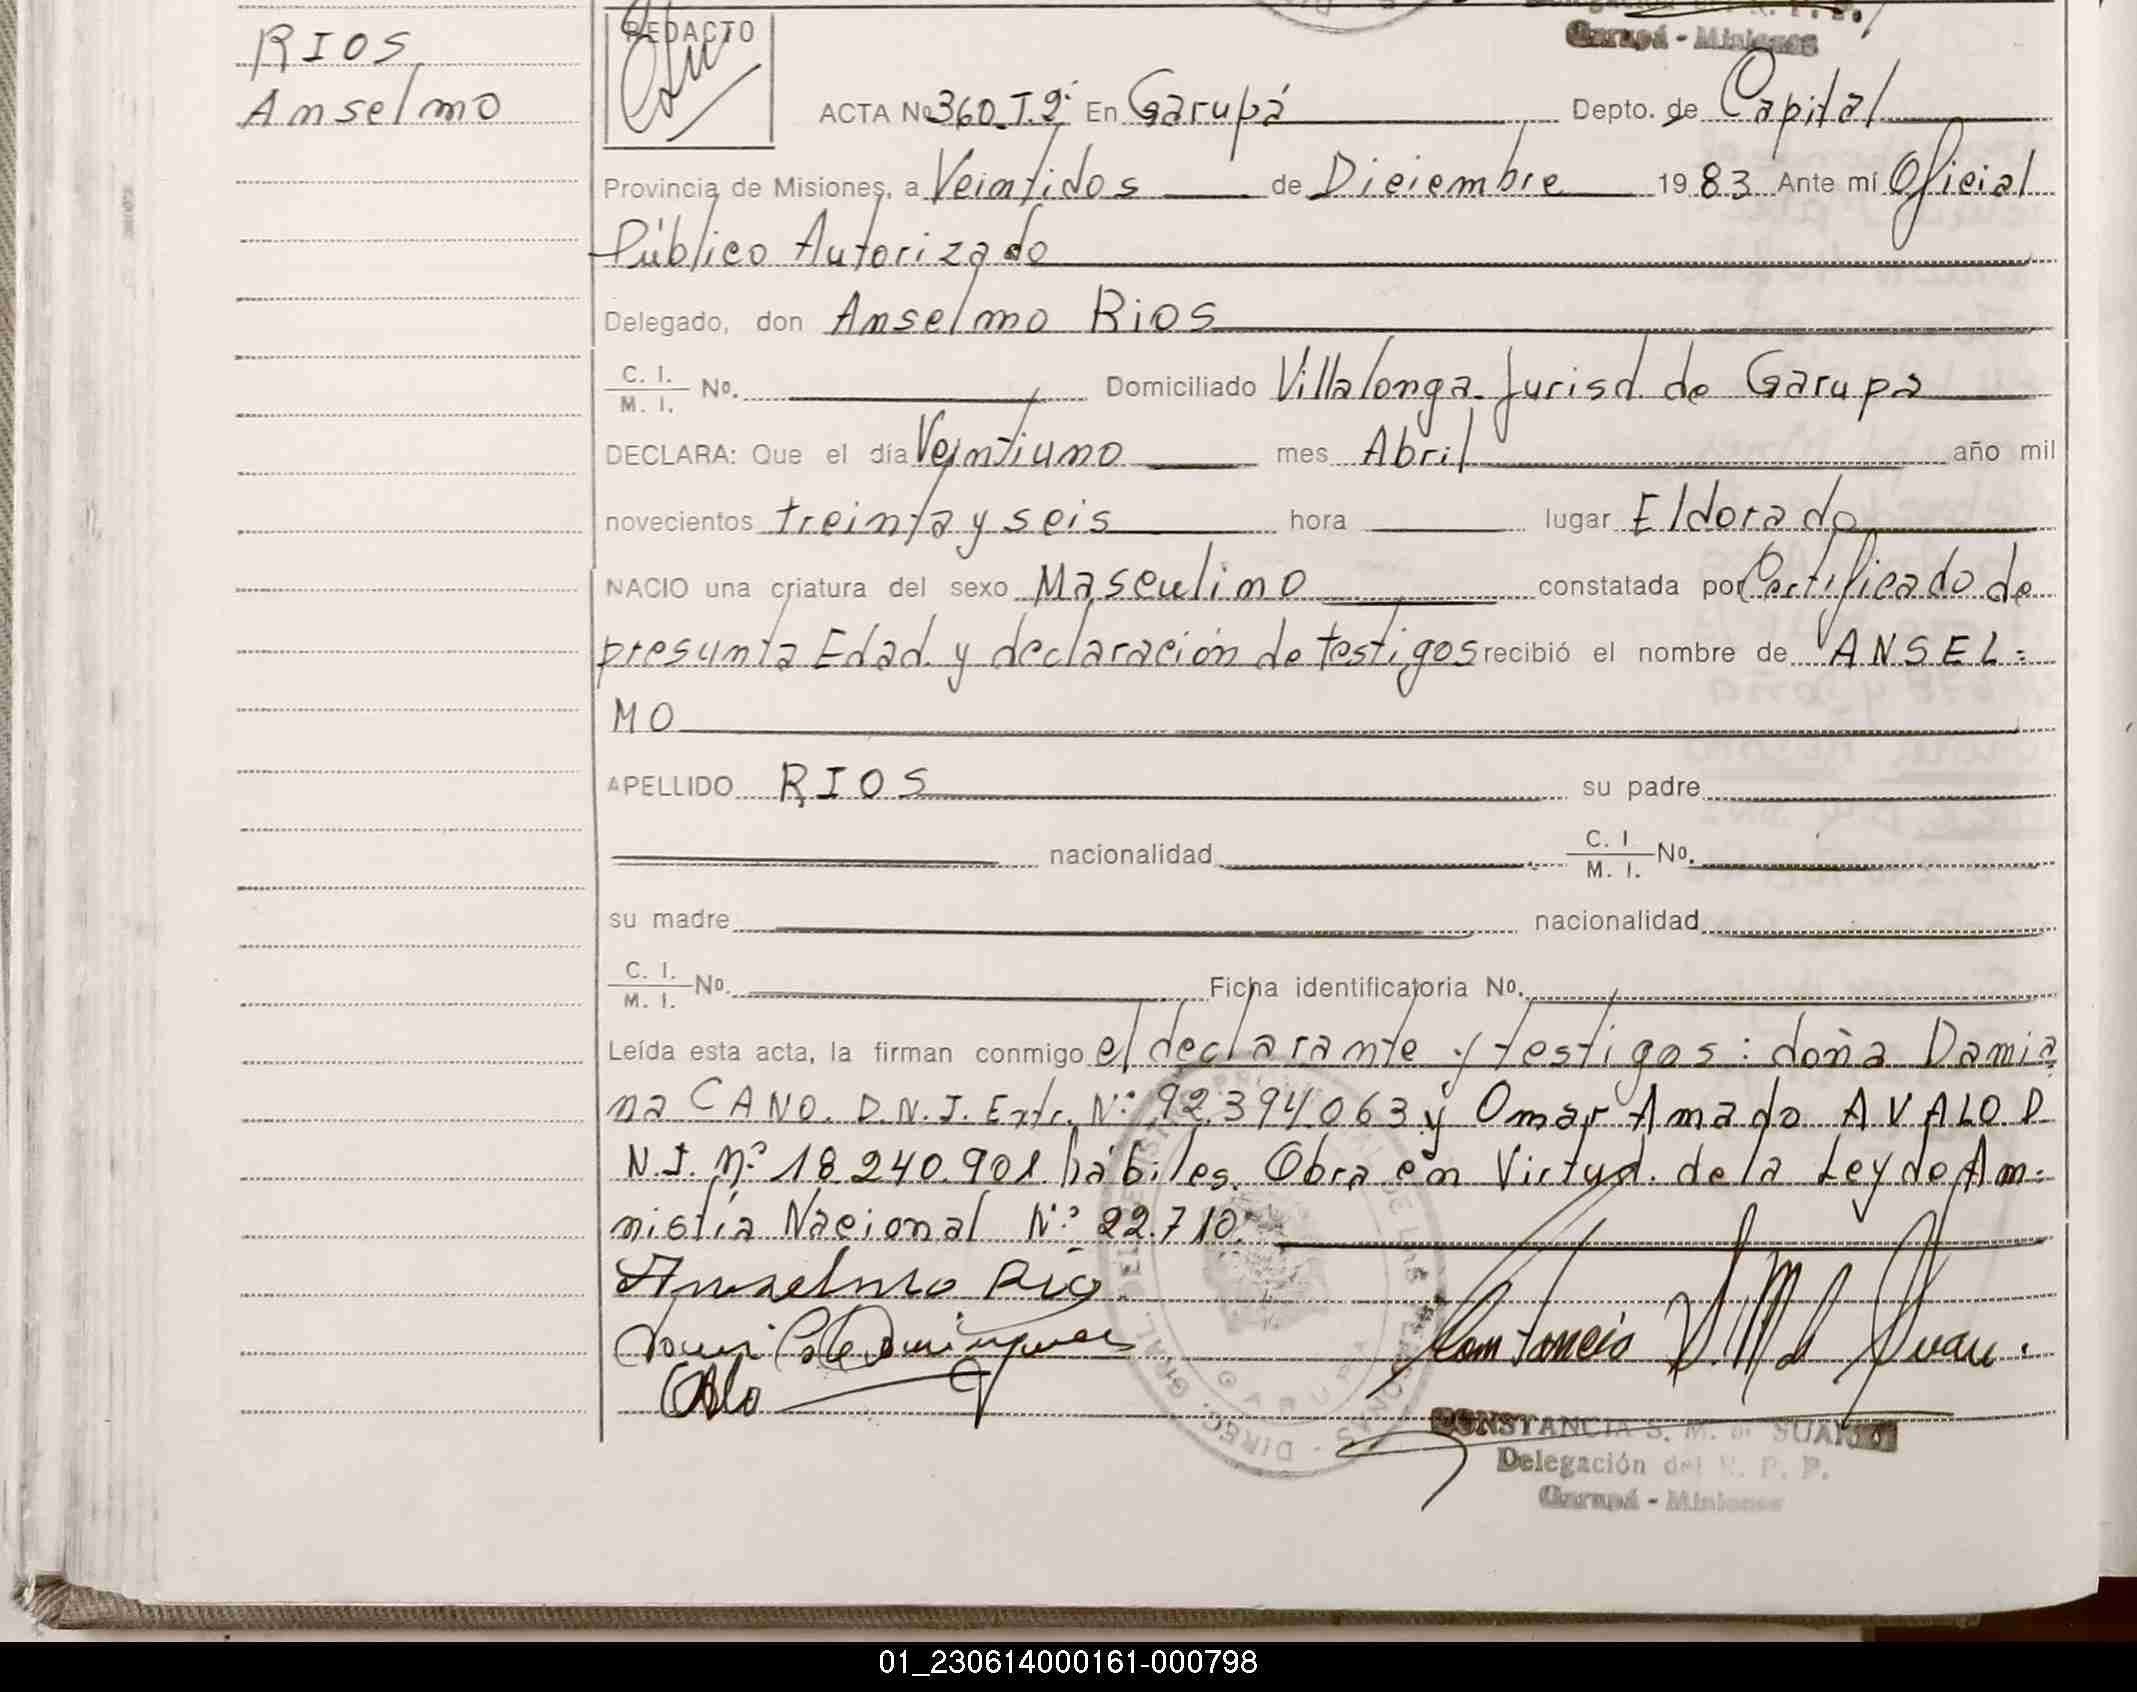 RIOS
Anselmo
REDACTO
Garupá - Misiones
ACTA Nº 360.T.2º En Garupá Depto. de Capital
Provincia de Misiones, a Veintidos de Diciembre 1983 Ante mí Oficial
Público Autorizado
Delegado, don Anselmo Rios
C. I. / M. I. Nº. Domiciliado Villalonga. Jurisd. de Garupa
DECLARA: Que el día Veintiuno mes Abril año mil
novecientos treinta y seis hora lugar Eldorado
NACIO una criatura del sexo Masculino constatada por Certificado de
presunta Edad. y declaración de testigos recibió el nombre de ANSEL=
MO
APELLIDO RIOS su padre
nacionalidad C. I. / M. I. Nº.
su madre nacionalidad
C. I. / M. I. Nº. Ficha identificatoria Nº.
Leída esta acta, la firman conmigo el declarante y testigos: doña Damia
na CANO. D.N.I. Extr. Nº: 92.394.063 y Omar Amado AVALO D.
N.I. Nº 18.240.901 hábiles. Obra en Virtud. de la Ley de Am=
nistía Nacional Nº: 22.710.
Anselmo Rio
CONSTANCIA S. M. de SUAREZ
Delegación del R. P. P.
Garupá - Misiones
01_230614000161-000798